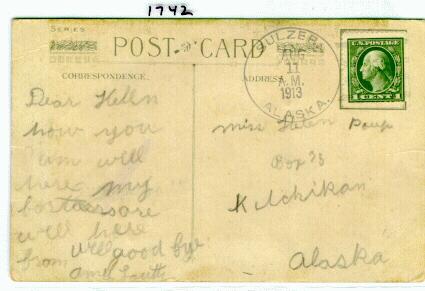 1742
SERIES
POST CARD
CORRESPONDENCE.
ADDRESS
SULZER
DEC
11
A.M.
1913
ALASKA.
U.S. POSTAGE
1 CENT 1
Dear Hellen
how you
am well
here my
are
will here
from well good bye
Miss Helen
Box 75
Ketchikan
Alaska